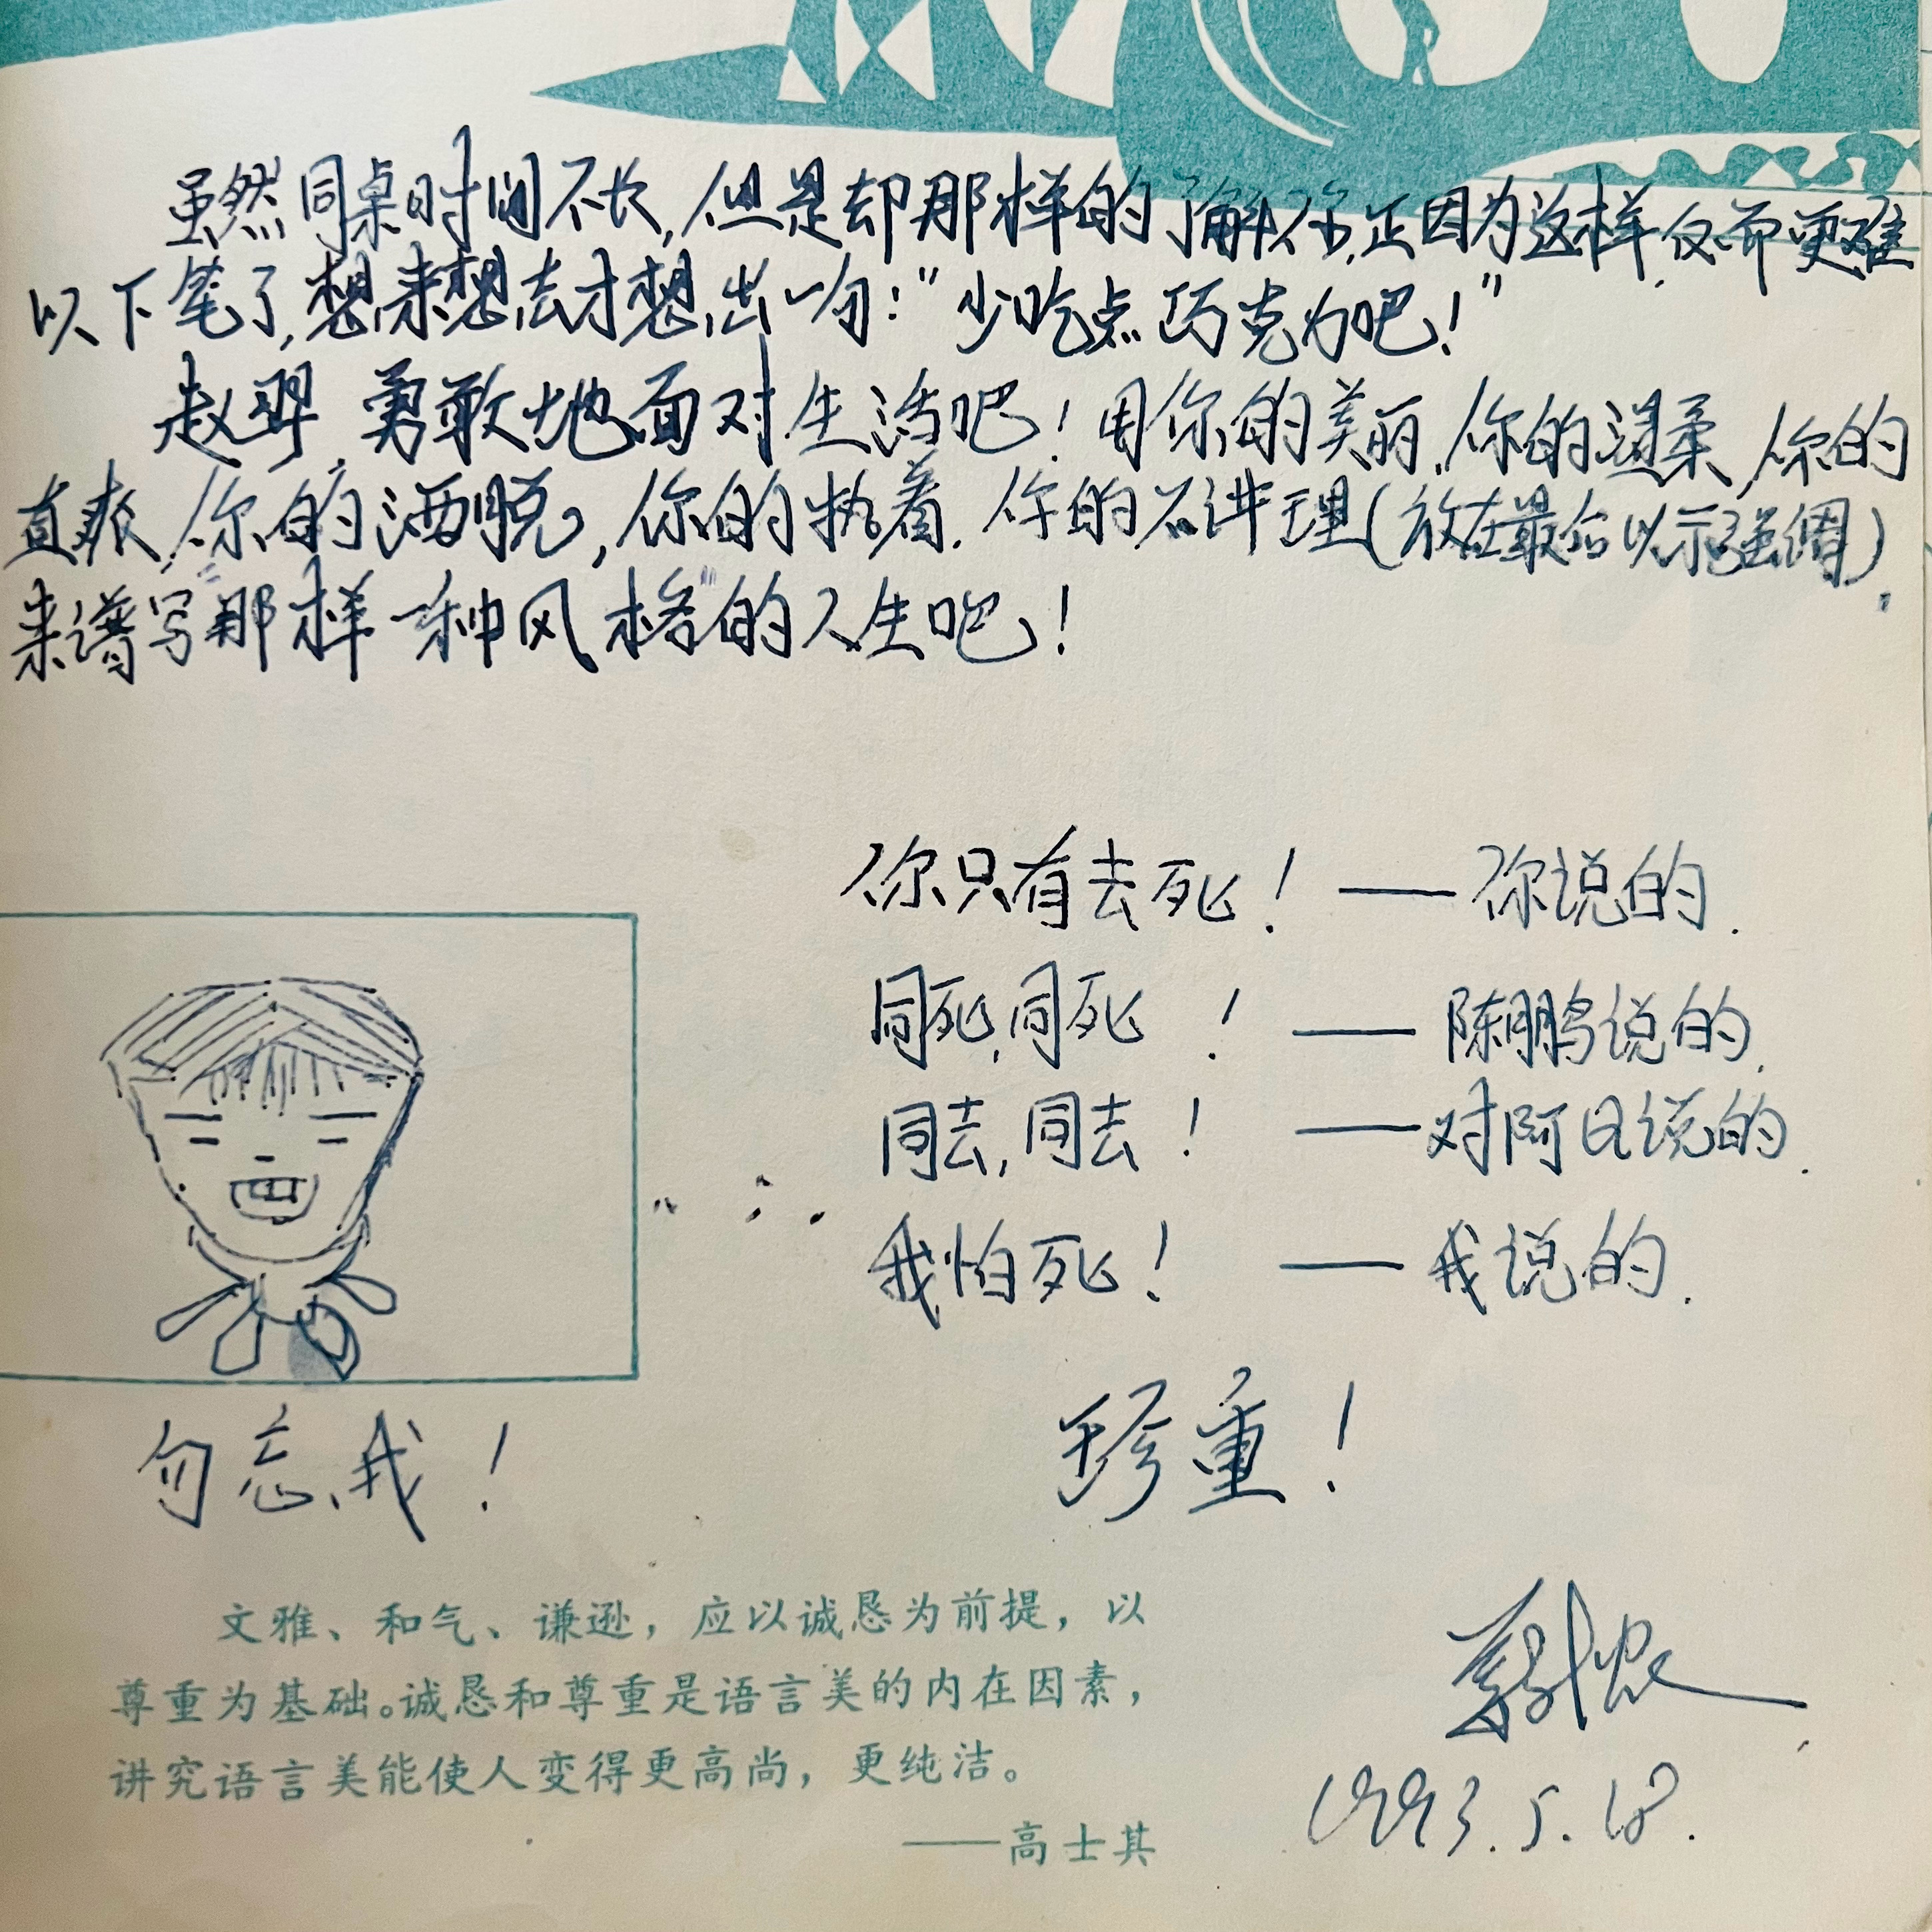 虽然同桌时间不长,但是却那样的了解你,正因为这样,反而更难
以下笔了,想来想去才想出一句:"少吃点巧克力吧!"
赵 勇敢地面对生活吧!用你的美丽,你的温柔,你的
直爽,你的洒脱,你的执着,你的不讲理(放在最后以示强调),
来谱写"那样一种风格"的人生吧!
你只有去死!——你说的.
同死,同死!——陈鹏说的.
同去,同去!——对阿Q说的.
我怕死!——我说的.
勿忘我!
珍重!
文雅、和气、谦逊,应以诚恳为前提,以
尊重为基础。诚恳和尊重是语言美的内在因素,
讲究语言美能使人变得更高尚,更纯洁。
——高士其
1993.5.18.